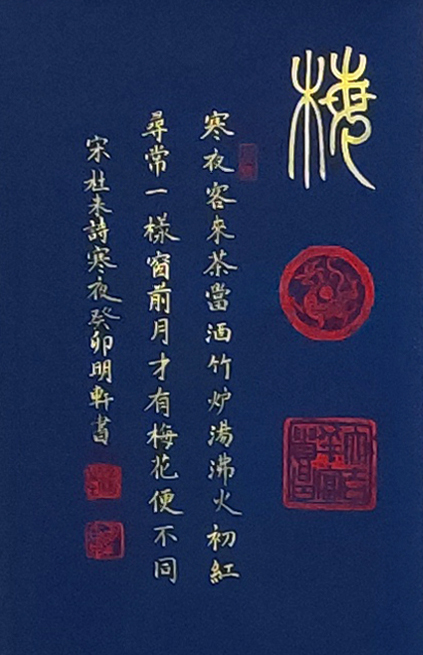 梅
寒夜客來茶當酒竹炉湯沸火初紅
尋常一樣窗前月才有梅花便不同
宋杜耒詩寒夜癸卯明軒書